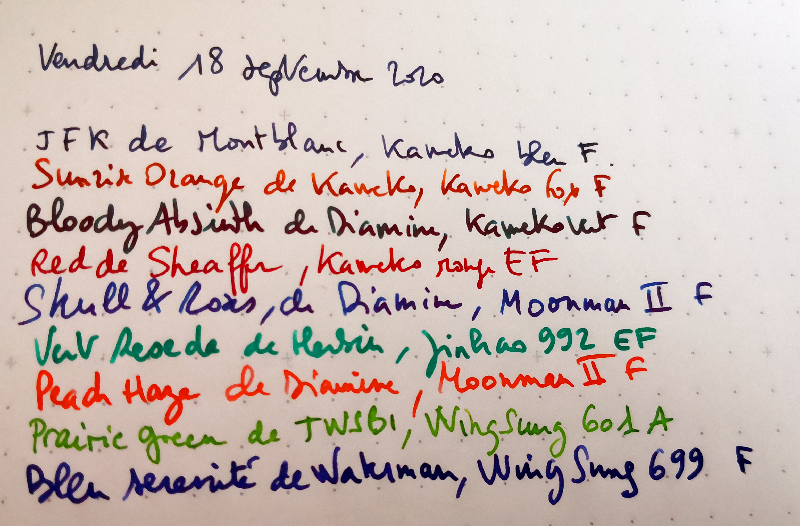 Vendredi 18 septembre 2020
JFK de Montblanc, Kaweko bleu F.
Sunrise Orange de Kaweko, Kaweko F
Bloody Absinth de Diamine, Kaweko vert F
Red de Sheaffer, Kaweko rouge EF
Skull & Roses, de Diamine, Moonman II F
Vert Reseda de Herbin, Jinhao 992 EF
Peach Haze de Diamine, Moonman II F
Prairie green de TWSBI, WingSung 601 A
Bleu serenité de Waterman, Wing Sung 699 F